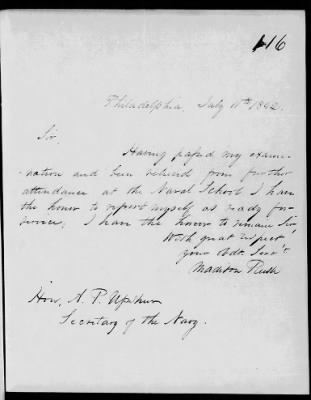 116
Philadelphia, July 11th 1842.
Sir,
Having passed my exami-
-nation and been relieved from further
attendance at the Naval School I have
the honor to report myself as ready for
service; I have the honor to remain Sir,
With great respect
your Obt. Serv't
Madison Rush
Hon, A. P. Upshur
Secretary of the Navy.